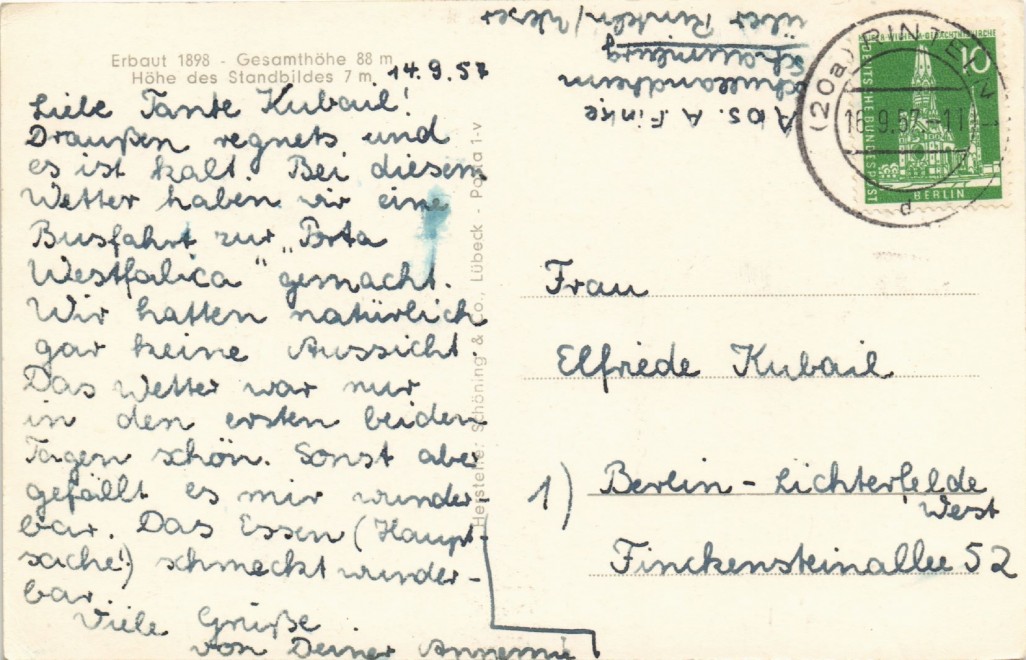 Erbaut 1898 - Gesamthöhe 88 m
Höhe des Standbildes 7 m
14.9.57
Liebe Tante Kubail!
Draußen regnets und
es ist kalt. Bei diesem
Wetter haben wir eine
Busfahrt zur „Porta
Westfalica" gemacht.
Wir hatten natürlich
gar keine Aussicht.
Das Wetter war nur
in den ersten beiden
Tagen schön. Sonst aber
gefällt es mir wunder-
bar. Das Essen (Haupt-
sache!) schmeckt wunder-
bar.
Viele Grüße
von Deiner Annemie
Hersteller Schöning & Co., Lübeck - Po 1-v
Abs. A. Finke
Schullandheim
Schaumburg
über Rinteln/Weser
(20a) RINTELN
16.9.57-11
d
10
DEUTSCHE BUNDESPOST
BERLIN
Frau
Elfriede Kubail
1) Berlin-Lichterfelde
West
Finckensteinallee 52